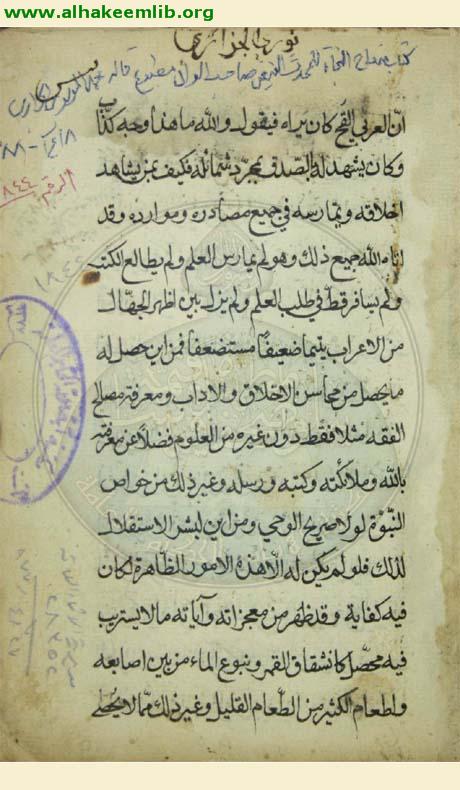 www.alhakeemlib.org
نور الدين الجزائري
كتاب منهاج النجاة للمحدث الفيض صاحب الوافي مطبوع
الرقم ٨٤٤
انّ العربي القحّ كان يراه فيقول والله ما هذا وجه كذّاب
وكان يشهد له بالصّدق بمجرّد شمائله فكيف بمن يشاهد
اخلاقه ويمارسه في جميع مصادره وموارده وقد
اتاه الله جميع ذلك وهو لم يمارس العلم ولم يطالع الكتب
ولم يسافر قطّ في طلب العلم ولم يزل بين اظهر الجهّال
من الاعراب يتيماً ضعيفاً مستضعفاً فمن اين حصل له
ما حصل من محاسن الاخلاق والاداب ومعرفة مصالح
الفقه مثلا فقط دون غيره من العلوم فضلاً عن معرفته
بالله وملائكته وكتبه ورسله وغير ذلك من خواص
النبّوة لولا صريح الوحي ومن اين لبشر الاستقلال
لذلك فلو لم يكن له الّا هذه الامور الظاهرة لكان
فيه كفاية وقد ظهر من معجزاته وآياته ما لا يستريب
فيه محصّل كانشقاق القمر ونبوع الماء من بين اصابعه
واطعام الكثير من الطّعام القليل وغير ذلك ممّا لا يحصى